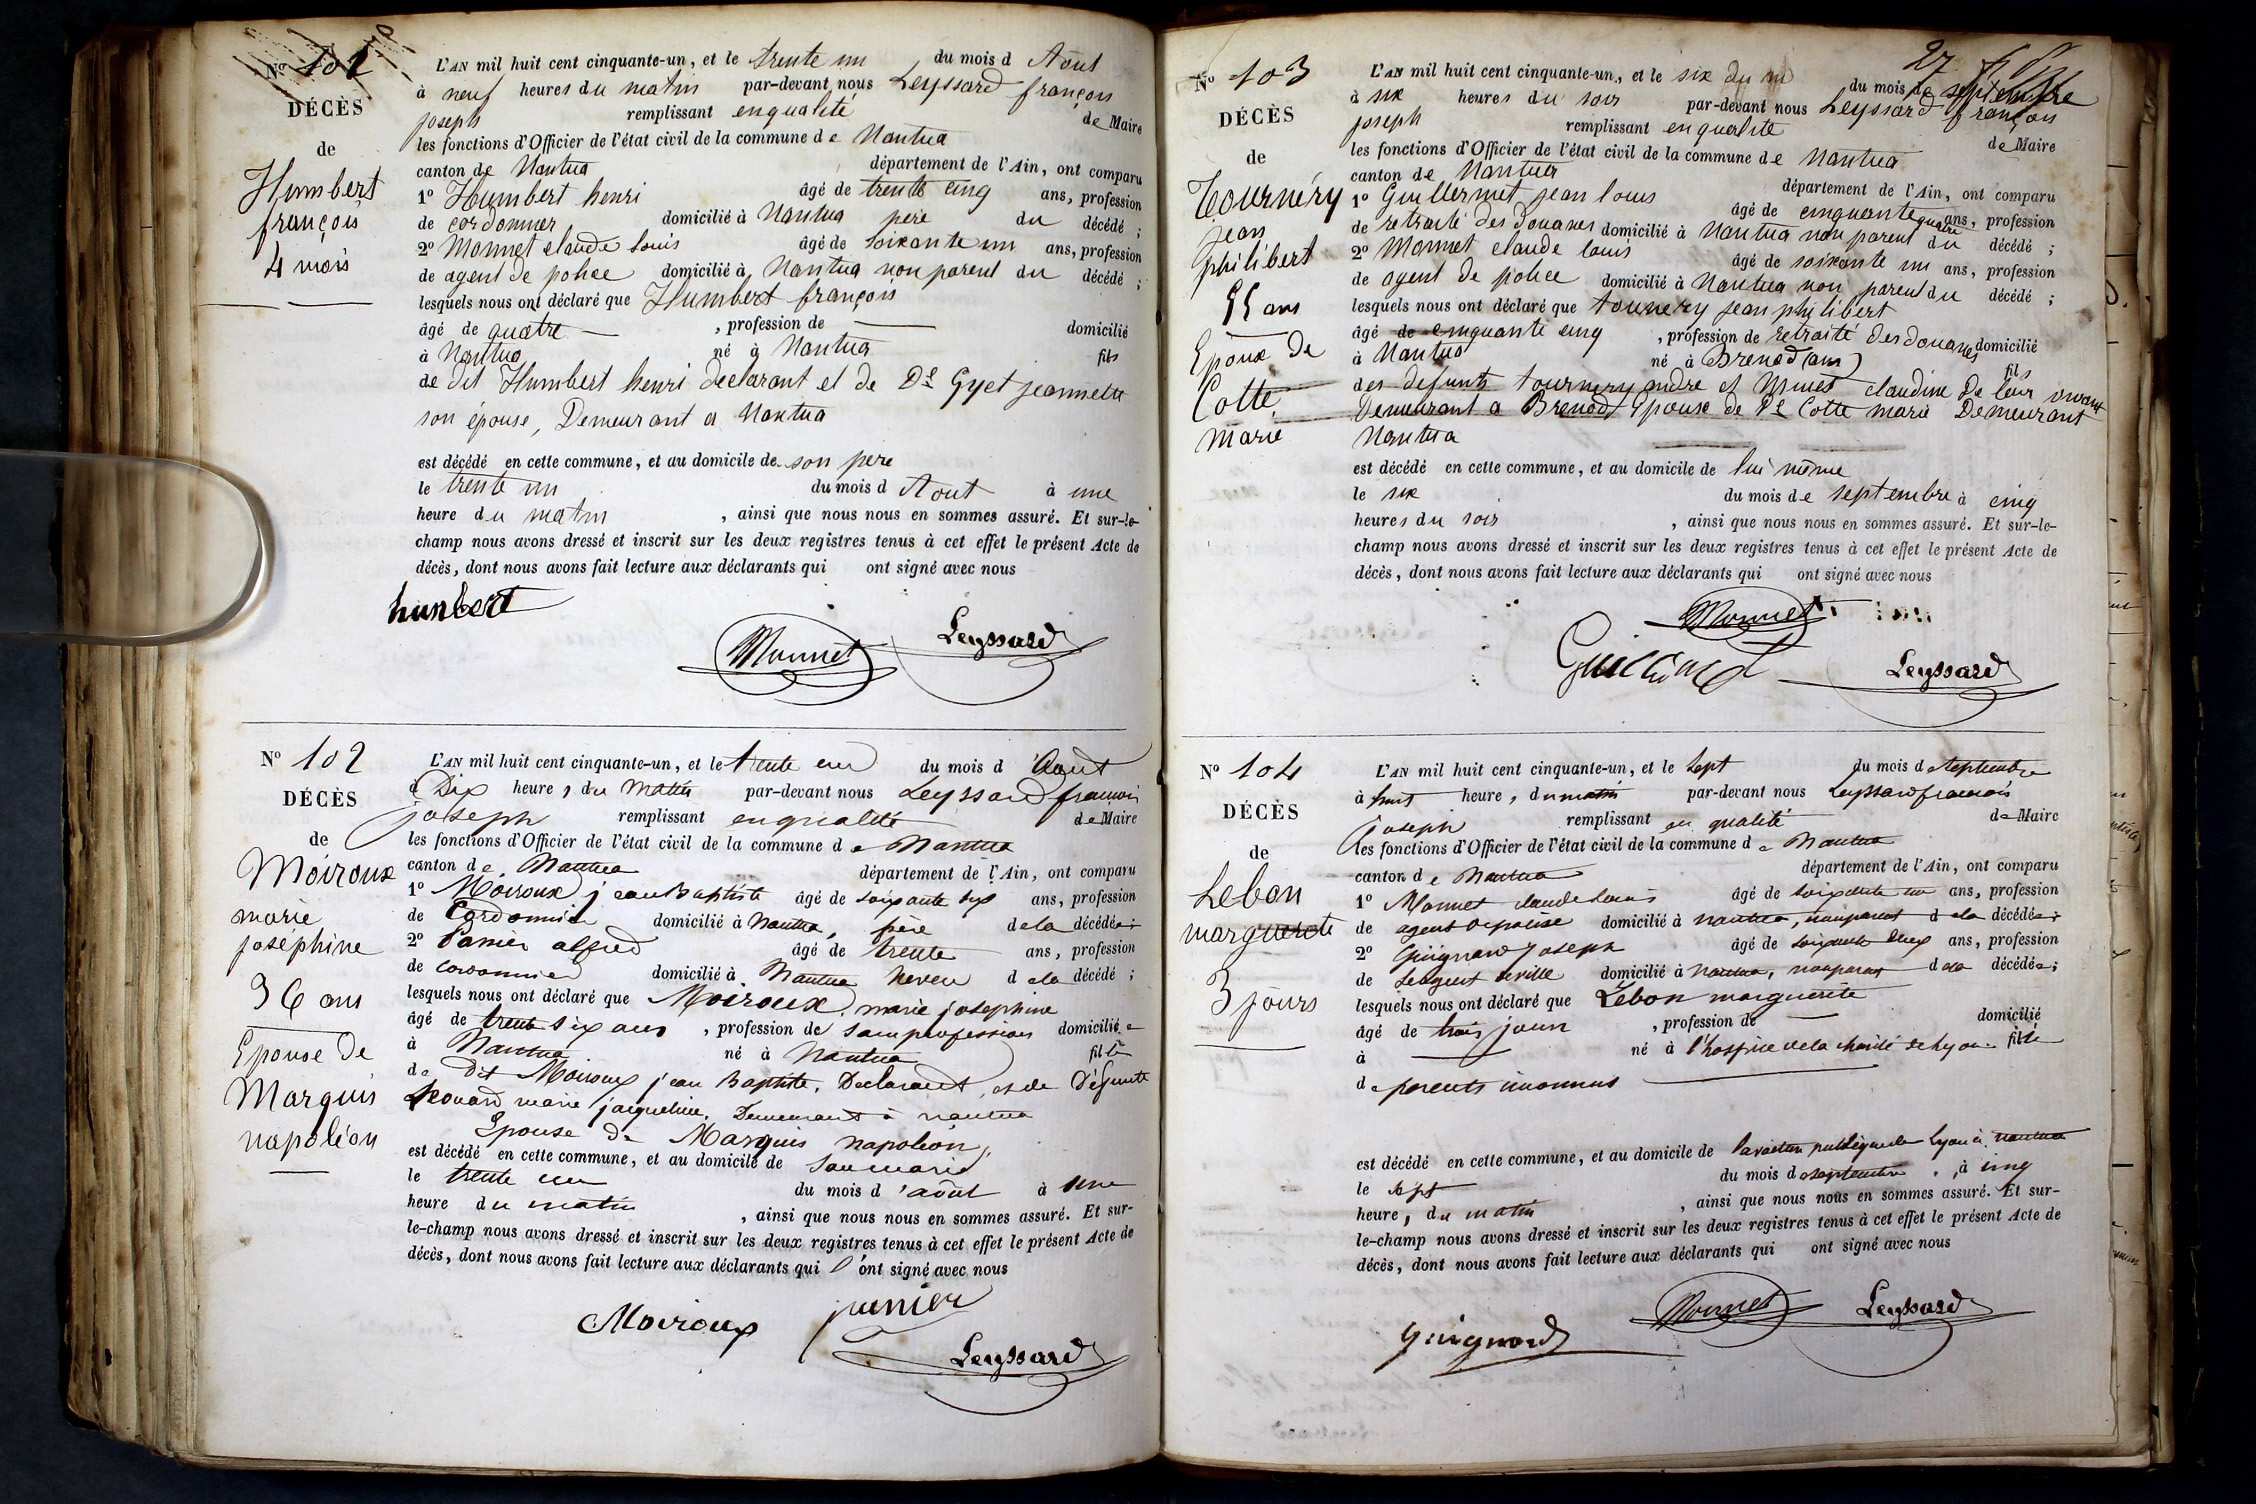 Nº 101
DÉCÈS
de
Humbert
françois
4 mois
L'AN mil huit cent cinquante-un, et le trente un du mois d Août
à neuf heures du matin par-devant nous Leyssard françois
joseph remplissant en qualité de Maire
les fonctions d'Officier de l'état civil de la commune de Nantua
canton de Nantua département de l'Ain, ont comparu
1º Humbert henri âgé de trente cinq ans, profession
de cordonnier domicilié à Nantua père du décédé ;
2º Monnet claude louis âgé de soixante un ans, profession
de agent de police domicilié à Nantua non parent du décédé ;
lesquels nous ont déclaré que Humbert françois
âgé de quatre — , profession de — domicilié
à Nantua né à Nantua fils
de dit Humbert henri déclarant et de De Gyet jeannette
son épouse, Demeurant a Nantua
est décédé en cette commune, et au domicile de son père
le trente un du mois d Aout à une
heure du matin , ainsi que nous nous en sommes assuré. Et sur-le-
champ nous avons dressé et inscrit sur les deux registres tenus à cet effet le présent Acte de
décès, dont nous avons fait lecture aux déclarants qui ont signé avec nous
humbert
Monnet Leyssard
Nº 102
DÉCÈS
de
Moiroux
marie
joséphine
36 ans
Epouse de
Marquis
napoléon
L'AN mil huit cent cinquante-un, et le trente un du mois d'Août
à Dix heures du matin par-devant nous Leyssard françois
joseph remplissant en qualité de Maire
les fonctions d'Officier de l'état civil de la commune de Nantua
canton de Nantua département de l'Ain, ont comparu
1º Moiroux jean Baptiste âgé de soixante six ans, profession
de Cordonnier domicilié à Nantua, père de la décédée ;
2º Panier alfred âgé de trente ans, profession
de cordonnier domicilié à Nantua neveu de la décédé ;
lesquels nous ont déclaré que Moiroux marie josephine
âgé de trente six ans , profession de sans profession domiciliée
à Nantua né à Nantua fille
de dit Moiroux jean Baptiste, Déclarant, et de Défunte
marie jacqueline, Demeurant à nantua
Epouse de Marquis napoléon,
est décédé en cette commune, et au domicile de son marie
le trente un du mois d'août à une
heure du matin , ainsi que nous nous en sommes assuré. Et sur-
le-champ nous avons dressé et inscrit sur les deux registres tenus à cet effet le présent Acte de
décès, dont nous avons fait lecture aux déclarants qui ont signé avec nous
Moiroux panier
Leyssard
27
Nº 103
DÉCÈS
de
Tournéry
jean
philibert
55 ans
Epoux De
Cotte
marie
L'AN mil huit cent cinquante-un, et le six du m du mois de septembre
à six heures du soir par-devant nous Leyssard françois
joseph remplissant en qualité de Maire
les fonctions d'Officier de l'état civil de la commune de Nantua
canton de Nantua département de l'Ain, ont comparu
1º Guillermet jean louis âgé de cinquante quatre ans, profession
de retraité des Douanes domicilié à Nantua non parent du décédé ;
2º Monnet claude louis âgé de soixante un ans, profession
de agent de police domicilié à Nantua non parent du décédé ;
lesquels nous ont déclaré que tournery jean philibert
âgé de cinquante cinq , profession de retraité des douanes domicilié
à Nantua né à Brenod (ain) fils
des defunts tournery andre et Munet claudine De leur vivant
Demeurant a Brenod, Epoux de De Cotte marie Demeurant
Nantua
est décédé en cette commune, et au domicile de lui même
le six du mois de septembre à cinq
heures du soir , ainsi que nous nous en sommes assuré. Et sur-le-
champ nous avons dressé et inscrit sur les deux registres tenus à cet effet le présent Acte de
décès, dont nous avons fait lecture aux déclarants qui ont signé avec nous
Monnet
Leyssard
Nº 104
DÉCÈS
de
Lebon
marguerite
3 jours
L'AN mil huit cent cinquante-un, et le Sept du mois de septembre
à huit heures du matin par-devant nous Leyssard francois
joseph remplissant en qualité de Maire
les fonctions d'Officier de l'état civil de la commune de Nantua
canton de Nantua département de l'Ain, ont comparu
1º Monnet claude louis âgé de soixante un ans, profession
de agent de police domicilié à nantua, non parent de la décédée ;
2º Guignard joseph âgé de soixante deux ans, profession
de Sergent de ville domicilié à nantua, non parent de la décédée ;
lesquels nous ont déclaré que Lebon marguerite
âgé de trois jours , profession de — domicilié
à — né à l'hospice de la charité de Lyon fille
de parents inconnus
est décédé en cette commune, et au domicile de la voiture publique de Lyon à nantua
le sept du mois de septembre , à cinq
heures du matin , ainsi que nous nous en sommes assuré. Et sur-
le-champ nous avons dressé et inscrit sur les deux registres tenus à cet effet le présent Acte de
décès, dont nous avons fait lecture aux déclarants qui ont signé avec nous
Monnet Leyssard
guignard